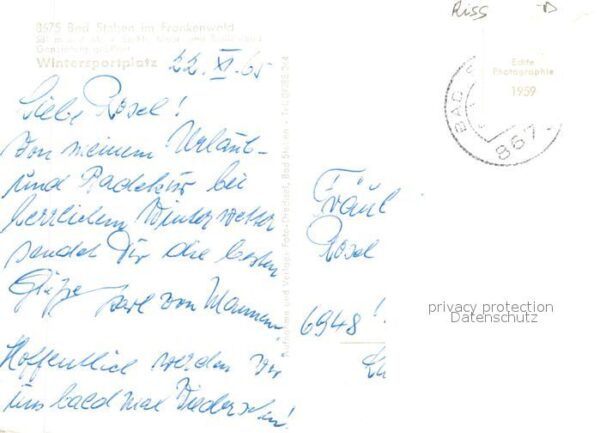 8675 Bad Steben im Frankenwald
Wintersportplatz
22. XI. 65
Liebe Rosel!
Von meinem Urlaub-
und Badekur bei
herrlichem Winterwetter
sendet Dir die besten
Grüße
Hoffentlich werden wir
uns bald mal Wiedersehen!
Aufnahme und Verlag: Foto-Drechsel, Bad Steben
Riss
Echte
Photographie
1959
BAD
867
Fräul
Rosel
6948!
privacy protection
Datenschutz